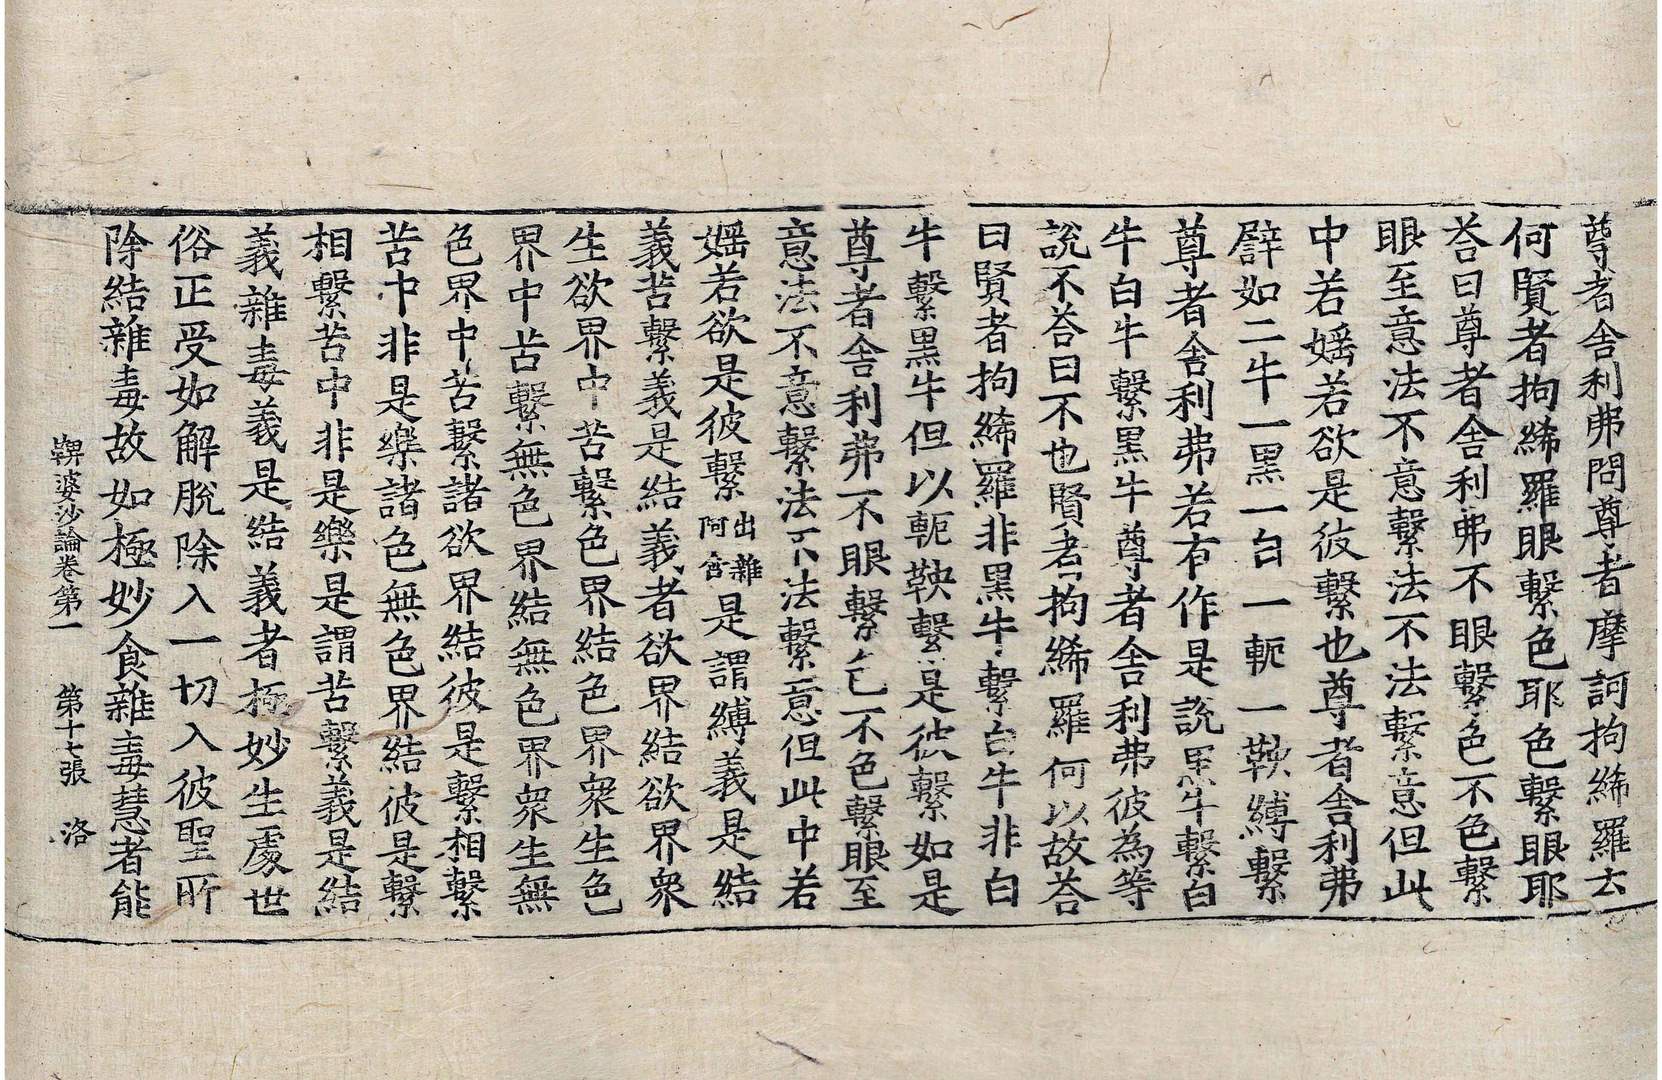 尊者舍利弗問尊者摩訶拘絺羅云
何賢者拘絺羅眼繫色耶色繫眼耶
荅曰尊者舍利弗不眼繫色不色繫
眼至意法不意繫法不法繫意但此
中若婬若欲是彼繫也尊者舍利弗
譬如二牛一黑一白一軛一鞅縛繫
尊者舍利弗若有作是說黑牛繫白
牛白牛繫黑牛尊者舍利弗彼為等
說不荅曰不也賢者拘絺羅何以故荅
曰賢者拘絺羅非黑牛繫白牛非白
牛繫黑牛但以軛鞅繫是彼繫如是
尊者舍利弗不眼繫色不色繫眼至
意法不意繫法不法繫意但此中若
婬若欲是彼繫出雜阿含是謂縛義是結
義苦繫義是結義者欲界結欲界衆
生欲界中苦繫色界結色界衆生色
界中苦繫無色界結無色界衆生無
色界中苦繫諸欲界結彼是繫相繫
苦中非是樂諸色無色界結彼是繫
相繫苦中非是樂是謂苦繫義是結
義雜毒義是結義者極妙生處世
俗正受如解脫除入一切入彼聖所
除結雜毒故如極妙食雜毒慧者能
鞞婆沙論卷第一　第十七張　洛